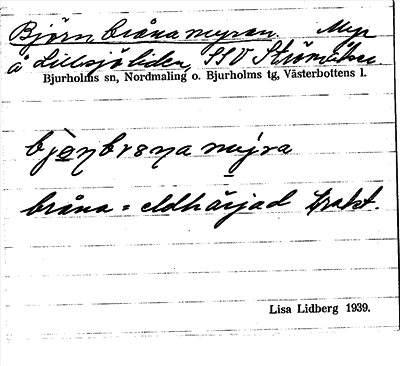 Björnbrånamyran. Myr
å Lillsjöliden, SSV Strömåker.
Bjurholms sn, Nordmaling o. Bjurholms tg, Västerbottens l.
bråna = eldhärjad trakt.
Lisa Lidberg 1939.